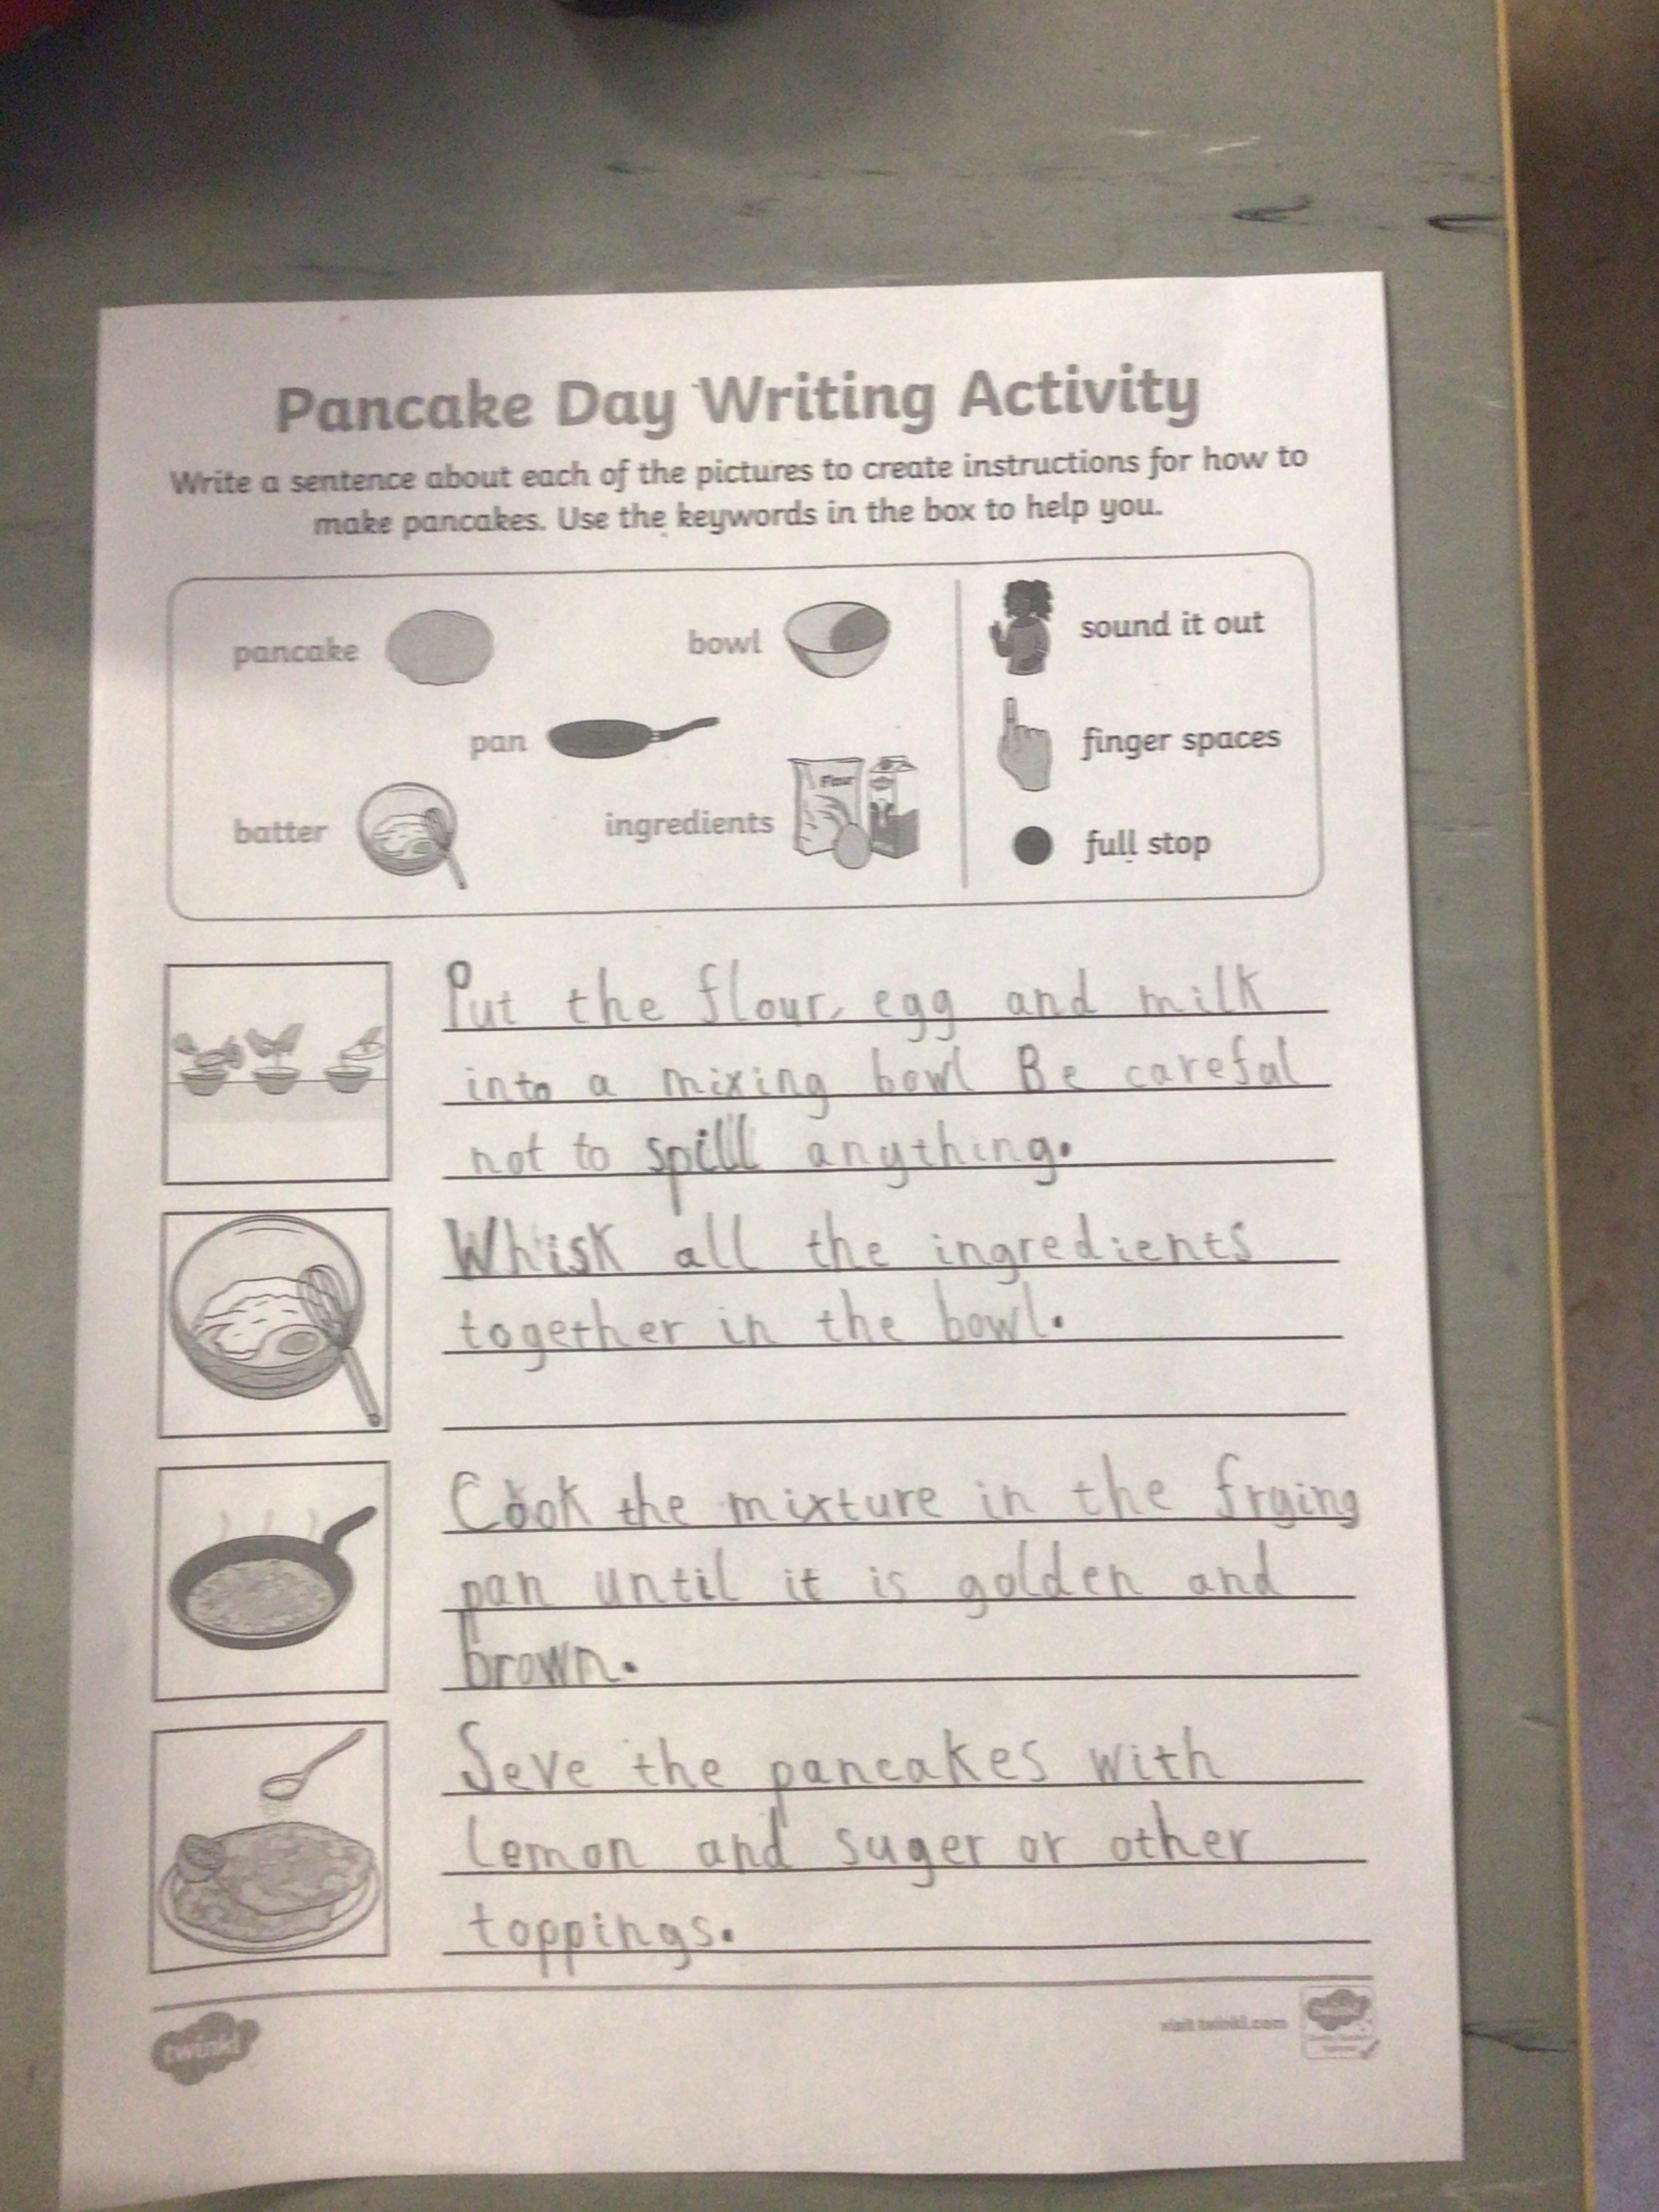 Pancake Day Writing Activity
Write a sentence about each of the pictures to create instructions for how to
make pancakes. Use the keywords in the box to help you.
pancake
bowl
sound it out
pan
finger spaces
Flour
batter
ingredients
full stop
Put the flour, egg and milk
into a mixing bowl Be careful
not to spill anything.
Whisk all the ingredients
together in the bowl.
Cook the mixture in the frying
pan until it is golden and
brown.
Seve the pancakes with
lemon and suger or other
toppings.
twinkl
visit twinkl.com